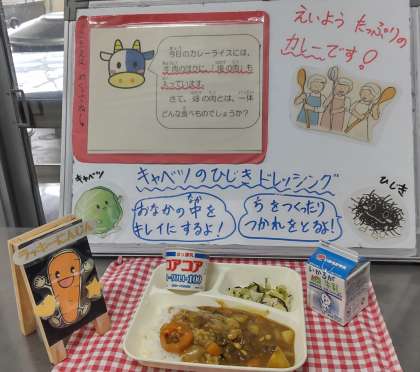 えいよう たっぷりの
カレーです!
今日のカレーライスには、
牛肉のほかに、「畑の肉」も
入っています。
さて、畑の肉とは、一体
どんな食べものでしょうか?
キャベツのひじきドレッシング
キャベツ
おなかの中を
キレイにするよ!
ちをつくったり
つかれをとるよ!
ひじき
ラッキーにんじん
いかるが
牛乳